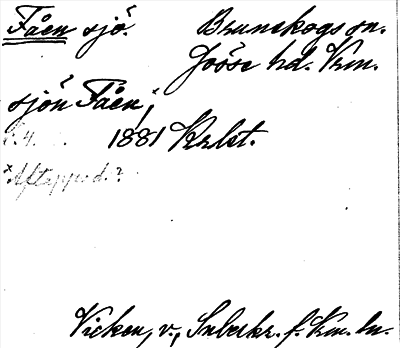 Fåen sjö. Brunskogs sn.
Jösse hd. Vrm.
sjön Fåen,
1881 Krbst.
Aftappad?
Vicken, v., Inberkr. f. Vrm. ln.